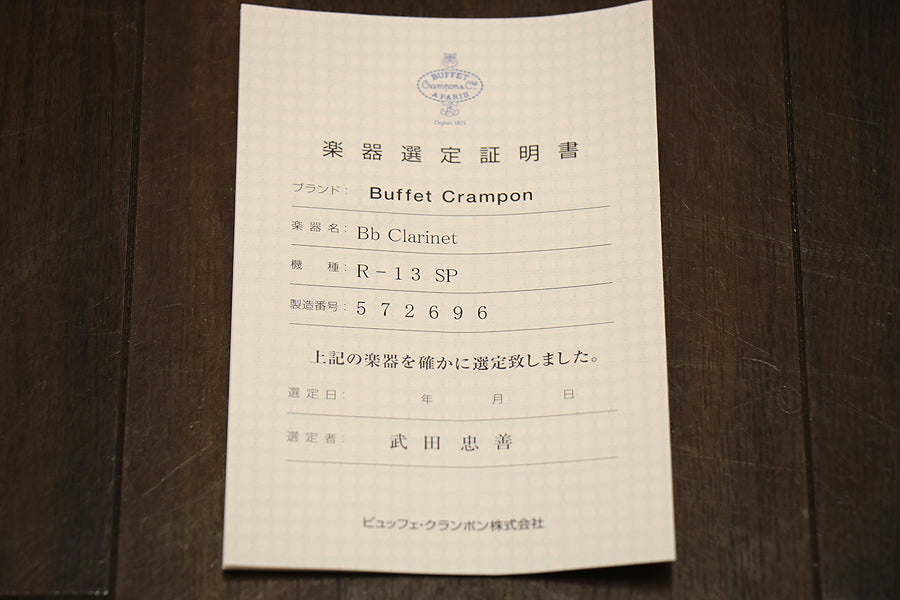 BUFFET
Crampon & Cie
A PARIS
Depuis 1825
楽器選定証明書
ブランド: Buffet Crampon
楽器名: Bb Clarinet
機 種: R-13 SP
製造番号: 572696
上記の楽器を確かに選定致しました。
選定日: 年 月 日
選定者: 武田忠善
ビュッフェ・クランポン株式会社